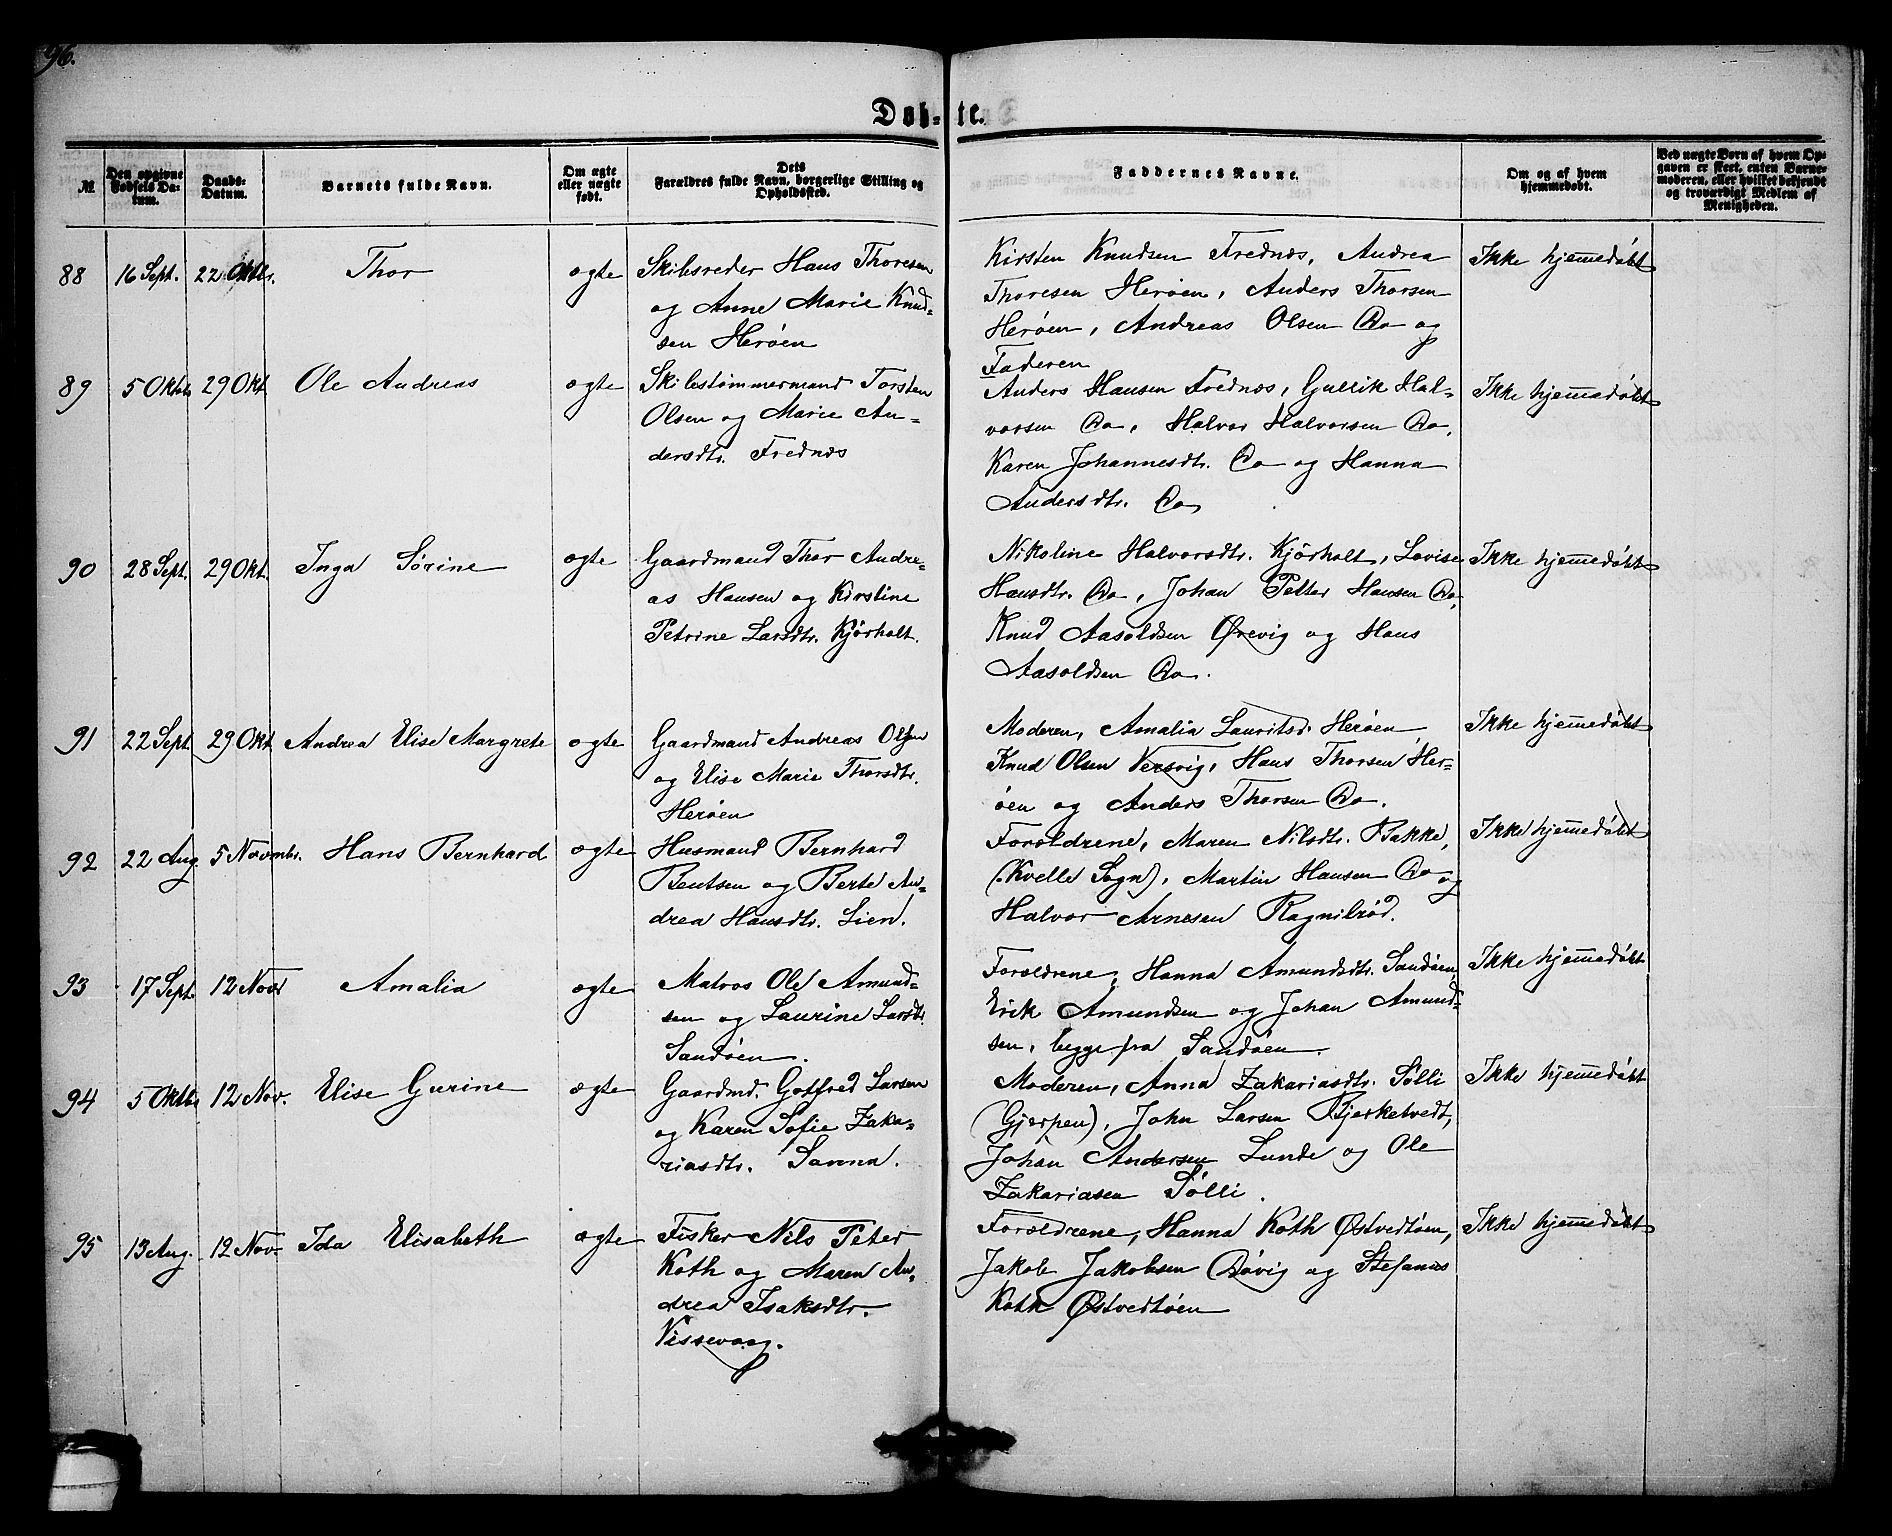 96.
Døb-te.
№
Den opgivne Fødsels Datum.
Daabs-Datum.
Barnets fulde Navn.
Om ægte eller uægte født.
Dets Forældres fulde Navn, borgerlige Stilling og Opholdssted.
Faddernes Navne.
Om og af hvem hjemmedøbt.
Ved uægte Børn af hvem Opgaven er skeet, enten Barnemoderen, eller hvilket bekjendt og troværdigt Medlem af Menigheden.
88 16 Sept. 22 Oktbr. Thor ægte
Skibsreder Hans Thoresen
og Anne Marie Knud-
sen Herøen
Kirsten Knudsen Frednæs, Andrea
Thoresen Herøen, Anders Thorsen
Herøen, Andreas Olsen Do og
Faderen
Ikke hjemmedøbt
89 5 Oktb 29 Okt Ole Andreas ægte
Skibstømmermand Torsten
Olsen og Marie An-
dersdtr. Frednæs
Anders Hansen Frednæs, Gullik Hal-
vorsen Do, Halvor Halvorsen Do,
Karen Johannesdtr. Do og Hanna
Andersdtr. Do
Ikke hjemmedøbt
90 28 Sept. 29 Okt. Inga Sørine ægte
Gaardmand Thor Andre-
as Hansen og Kirstine
Petrine Larsdtr. Kjørholt.
Nikoline Halvorsdtr. Kjørholt, Lovise
Hansdtr. Do, Johan Petter Hansen Do,
Knud Aasoldsen Ørevig og Hans
Aasoldsen Do.
Ikke hjemmedøbt
91 22 Sept 29 Okt Andrea Elise Margrete ægte
Gaardmand Andreas Olsen
og Elise Marie Thorsdtr.
Herøen
Moderen, Amalia Lauritsd. Herøen
Knud Olsen Versvig, Hans Thorsen Her-
øen og Anders Thorsen Do.
Ikke hjemmedøbt
92 22 Aug 5 Novmbr. Hans Bernhard ægte
Husmand Bernhard
Bentsen og Berte An-
drea Hansdtr. Lien.
Forældrene, Maren Nilsdtr. Bakke,
(Kvelle Sogn), Martin Hansen Do og
Halvor Arnesen Ragnilrød.
Ikke hjemmedøbt
93 17 Sept. 12 Novr Amalia ægte
Matros Ole Amund-
sen og Laurine Larsdtr.
Sandøen.
Forældrene, Hanna Amundsdtr. Sandøen,
Erik Amundsen og Johan Amund-
sen, begge fra Sandøen.
Ikke hjemmedøbt
94 5 Oktb 12 Nov. Elise Gurine ægte
Gaardmd. Gotfred Larsen
og Karen Sofie Zaka-
riasdtr. Sanna.
Moderen, Anna Zakariasdtr. Sølli
(Gjerpen), John Larsen Bjerketvedt,
Johan Andersen Lunde og Ole
Zakariasen Sølli.
Ikke hjemmedøbt
95 13 Aug. 12 Nov. Ida Elisabeth ægte
Fisker Nils Peter
Koth og Maren An-
drea Isaksdtr.
Vissevaag.
Forældrene, Hanna Koth Østvedtøen,
Jakob Jakobsen Døvig og Stefanus
Koth Østvedtøen
Ikke hjemmedøbt